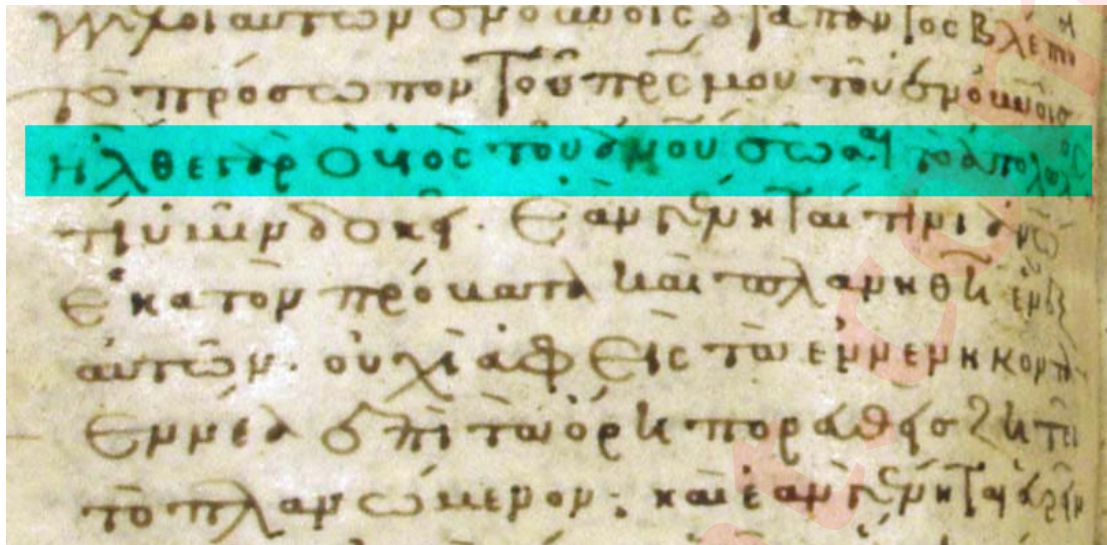 γγελοι αυτῶν ἐν οὐνοις διαπαντος βλέπου
τὸ πρόσωπον τοῦ πρς μου τοῦ ἐν οὐνοις
ἦλθε γὰρ ὁ υἱὸς τοῦ ἀνου σῶσαι τὸ ἀπολωλος
τί ὑμῖν δοκεῖ. Ἐὰν γένηται τινι ἀνω
ἑκατὸν πρόβατα καὶ πλανηθῆ ἓν ἐξ
αὐτῶν. οὐχὶ ἀφεὶς τὰ ἐννενηκοντα
ἐννέα ἐπὶ τὰ ὄρη πορευθεὶς ζητεῖ
τὸ πλανώμενον; καὶ ἐὰν γένηται εὑρεῖν